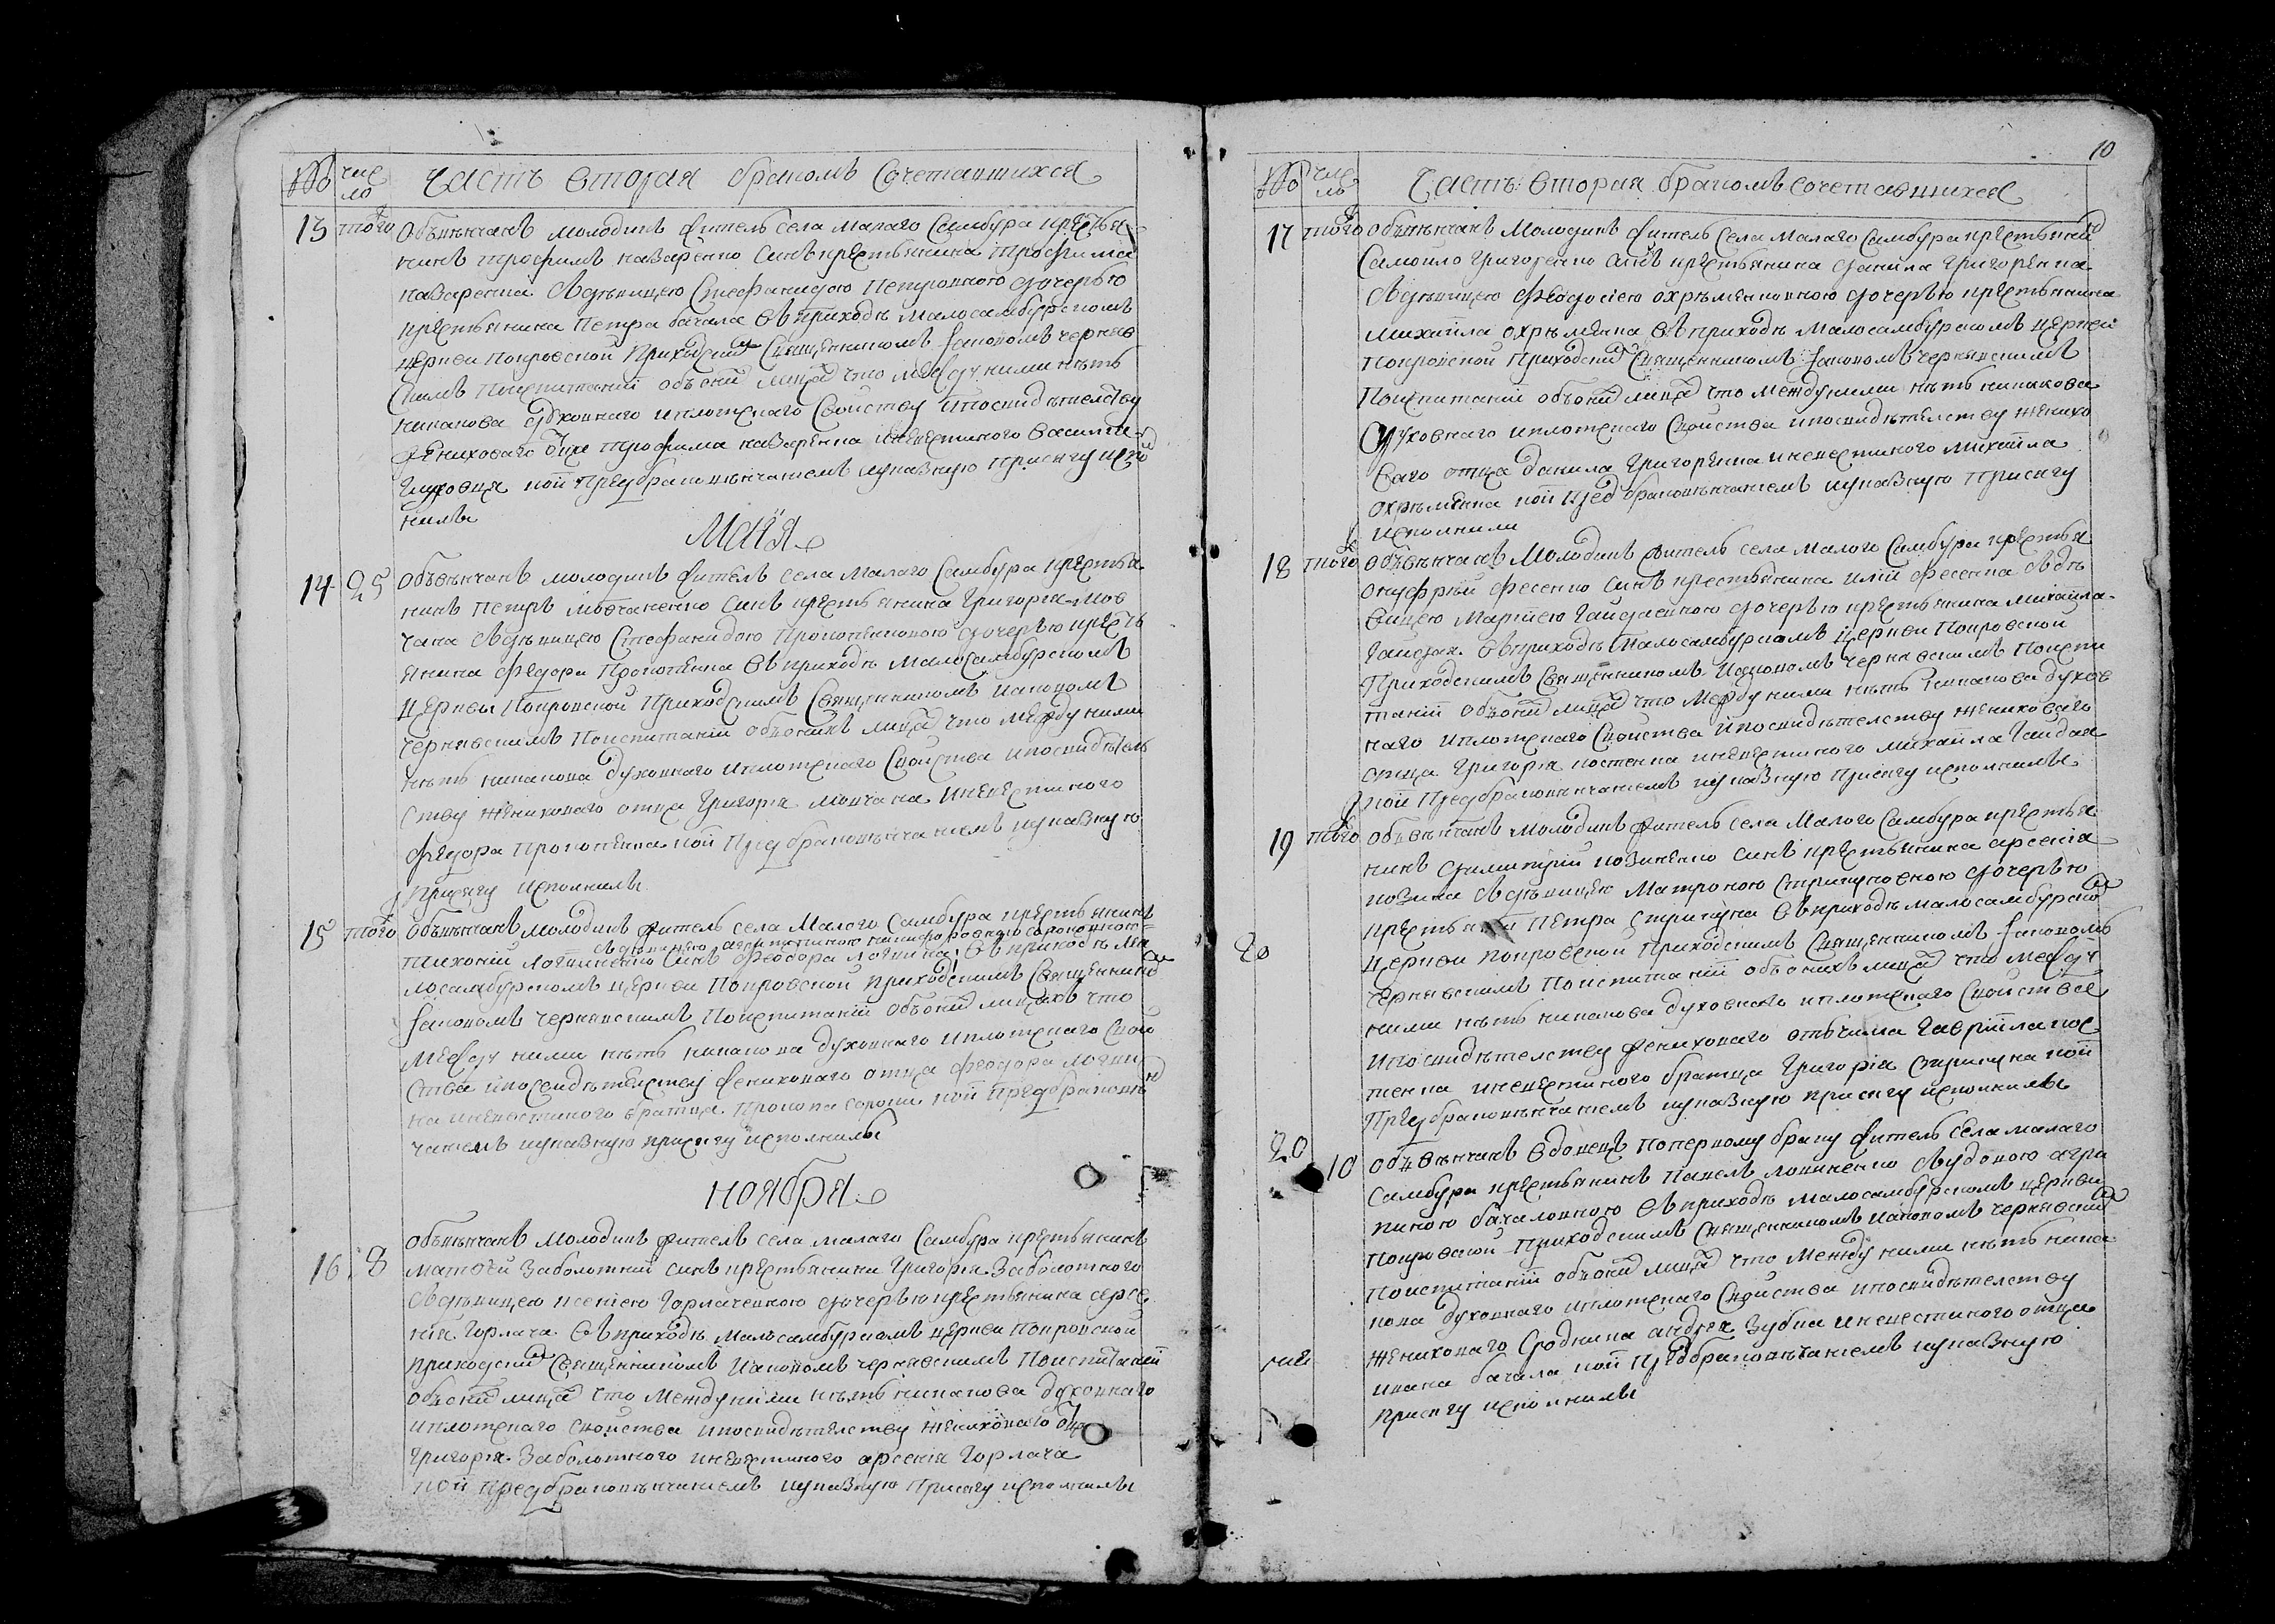 № чис
ло
Часть вторая бракомъ Сочетавшихся
13 того
Объвѣнчанъ молодикъ житель села малаго Самбура крестья
нинъ трофимъ назаренко Синъ крестьянина трофима
назаренка Здѣвицею Стефанидою Петровною дочерью
крестьянина Петра бачала въ приходѣ малосамбурскомъ
церкви покровской Приходскимъ Священикомъ Іаковомъ черняв
скимъ Поиспитаніи объоихъ лицахъ что между ними нѣтъ
никакова духовнаго иплотскаго Свойству ипосвидѣтелству
жениховаго отца трофима назаренка иневестиного василия
кой Предбраковѣнчаніемъ указную присягу испол
нилы
Маія
14 25
Объвѣнчанъ молодикъ житель села Малаго Самбура крестья
нинъ петръ мовчаненко синъ крестьянина Григорія мов
чана Здѣвицею Стефанидою Прокопенковою дочерью кресть
янина Федора Прокопенка въ приходѣ малосамбурскомъ
церквы покровской Приходскимъ Священикомъ Іаковомъ
чернявскимъ Поиспитаніи объоихъ лицахъ что между ними
нѣтъ никакова духовнаго иплотскаго Свойства ипосвидѣтель
ству жениховаго отца Григорія мовчана иневестиного
федора прокопенка кой Предбраковѣнчаніемъ указную
присягу исполнилы
15 того
Объвѣнчанъ молодикъ житель села Малого Самбура крестьянинъ
здѣвицею агрипиною никифоровною
тихоній логвиненко Синъ Феодора логвина въ приходѣ ма
лосамбурскомъ церкви Покровской приходскимъ Священикомъ
Іаковомъ чернявскимъ Поиспитаніи объоихъ лицахъ что
между ними нѣтъ никакова духовнаго иплотскаго Свой
ства ипосвидѣтелству жениховаго отца феодора логви
на иневестиного братца прокопа сороки кой Предбраковѣн
чаніемъ указную присягу исполнилы
ноября
16 8
Объвѣнчанъ молодикъ житель села малаго Самбура крестьянинъ
матфей Заболотній синъ крестьянина Григорія Заболотного
Здѣвицею ксеніею Горлачевною дочерью крестьянина арсе
нія Горлача въ приходѣ малосамбурскомъ церкви покровской
приходскимъ Священникомъ Іаковомъ чернявскимъ Поиспитаніи
объоихъ лицахъ что между ними нѣтъ никакова духовнаго
иплотскаго свойства ипосвидѣтелству жениховаго отца
Григорія Заболотного иневестиного арсенія Горлача
кой предбраковѣнчаніемъ указную присягу исполнилы
10
№ чис
ло
Часть вторая бракомъ сочетавшихся
17 того
Объвѣнчанъ Молодикъ житель Села Малаго Самбура крестьянинъ
Самоило Григоренко синъ крестьянина данила Григоренка
Здѣвицею Феодосіею охрѣменковною дочерью крестьянина
михаіла охрѣменка въ приходѣ Малосамбурскомъ церкви
покровской приходскимъ Священникомъ Іаковомъ чернявскимъ
Поиспитаніи объоихъ лицахъ что между ними нѣтъ никакова
духовнаго иплотскаго Свойства ипосвидѣтелству женихо
ваго отца данила Григоренка иневестиного михаіла
охрѣменка кой пред браковѣнчаніемъ указную Присягу
исполнили
18 того
Объвѣнчанъ Молодикъ житель села малого Самбура крестья
онуфрій фесенко Синъ крестьянина иліи фесенка здѣ
вицею Марфею Гайдаевною дочерью крестьянина михаіла
Гайдая въ приходѣ Малосамбурскомъ церкви Покровской
Приходскимъ Священикомъ Іаковомъ чернявскимъ Поиспи
таніи объоихъ лицахъ что между ними нѣтъ никакова духов
наго иплотскаго Свойства ипосвидѣтелству жениховаго
отца Григорія костенка иневестиного михаіла Гайдая
кой Предбраковѣнчаніемъ указную Присягу исполнилы
19 того
Объвѣнчанъ молодикъ житель села Малого Самбура крестья
нинъ димитрій козиненко синъ крестьянина арсенія
козина Здѣвицею Матроною Стрикуновною дочерью
крестьянина Петра стрикуна въ приходѣ малосамбурском
20
церкви покровской приходскимъ Священникомъ Іаковомъ
чернявскимъ Поиспитаніи объоихъ лицахъ что между
ними нѣтъ никакова духовнаго иплотскаго Свойства
ипосвидѣтелству жениховаго отчима Гавріила кос
тенка иневестиного братца Григорія стрикуна кой
Предбраковѣнчаніемъ указную присягу исполнилы
20 10
Объвѣнчанъ вдовецъ поперному браку житель села малаго
Самбура крестьянинъ Павелъ логвиненко Звдовою агри
пиною бачаловною въ приходѣ малосамбурскомъ церкви
покровской приходскимъ Священникомъ Іаковомъ чернявскимъ
Поиспитаніи объоихъ лицахъ что между ними нѣтъ ника
кова духовнаго иплотскаго Свойства ипосвидѣтелству
жениховаго Сродника андрея Зубка иневестиного отца
ивана бачала кой предбраковѣнчаніемъ указную
присягу исполнилы